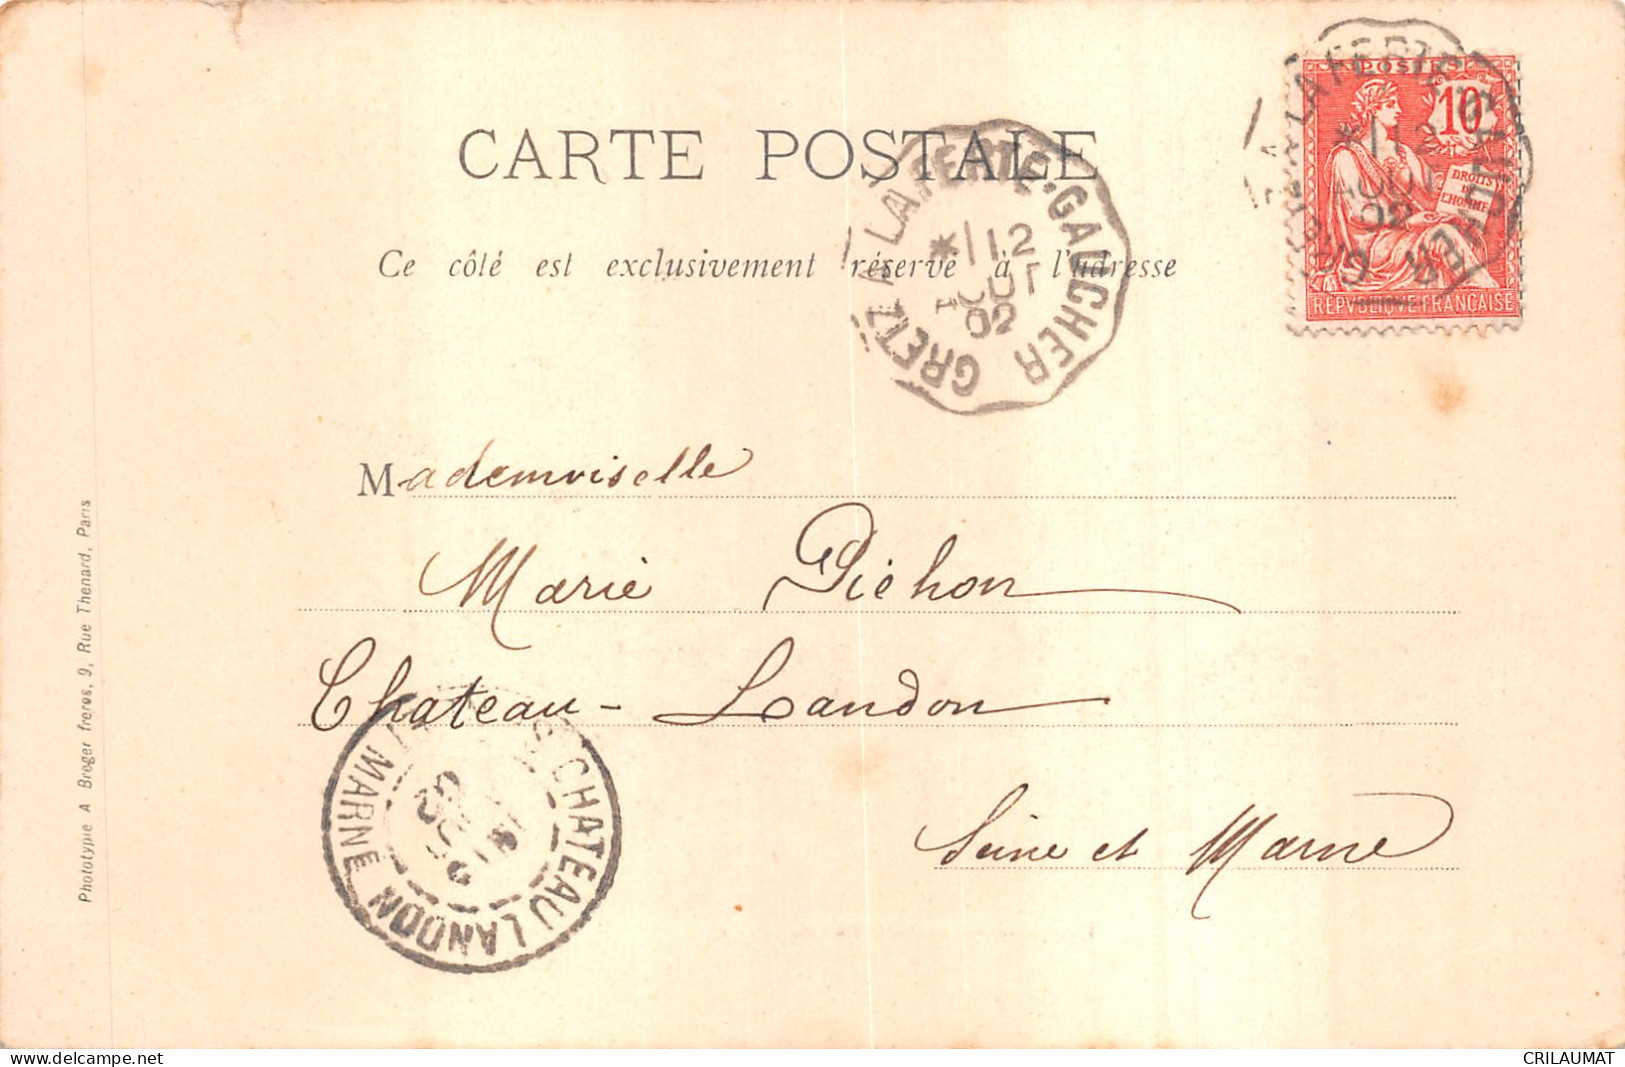 CARTE POSTALE
Ce côté est exclusivement réservé à l'adresse
GRETZ A LA FERTE-GAUCHER
* 12
AOUT
02
POSTES
10
DROITS
DE
L'HOMME
REPVBLIQVE FRANÇAISE
GRETZ A LA FERTE-GAUCHER
* 12
AOUT
02
Mademoiselle
Marie Pichon
Chateau-Landon
Seine et Marne
CHATEAU LANDON
MARNE
Phototypie A Breger frères, 9, Rue Thenard, Paris
https://www.delcampe.net
CRILAUMAT